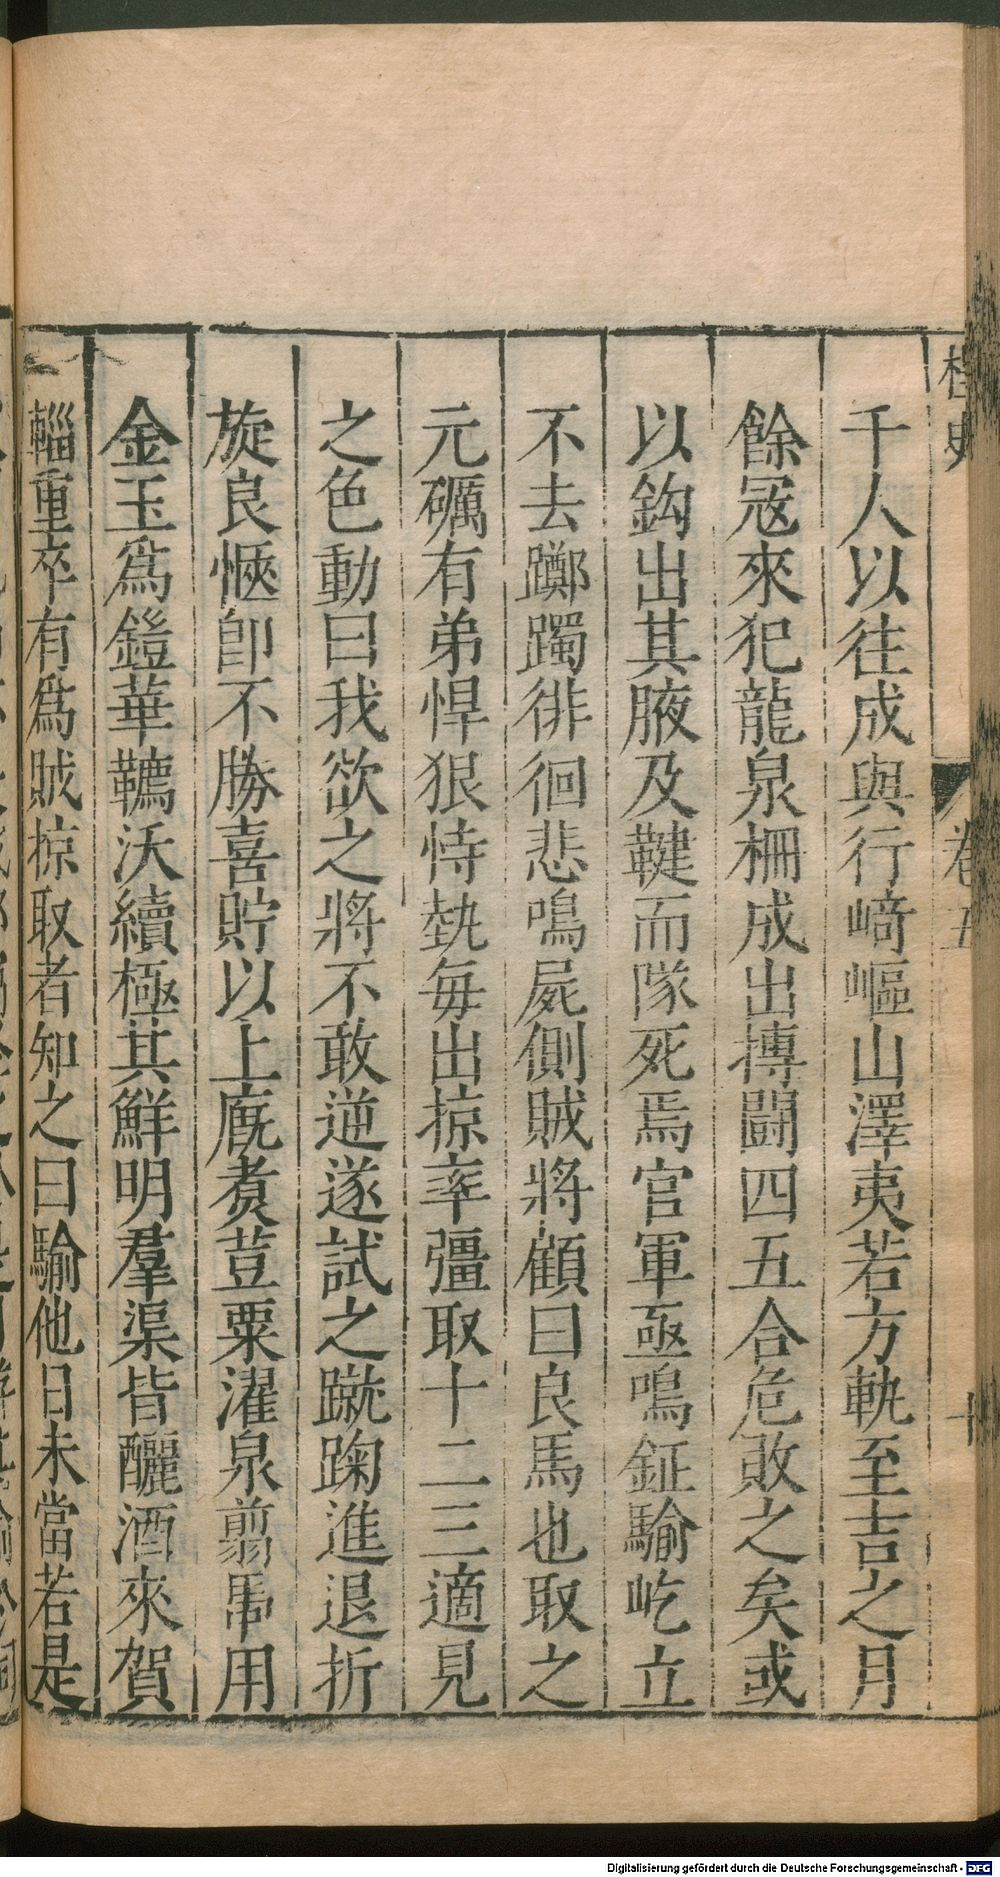 桯史
卷五
十
千人以往成與行﨑嶇山澤夷若方軌至吉之月
餘冦來犯龍泉柵成出搏鬭四五合危敗之矣或
以鈎出其腋及鞬而隊死焉官軍亟鳴鉦騟屹立
不去躑躅徘徊悲鳴屍側賊將顧曰良馬也取之
元礪有弟悍狠恃埶毎出掠率彊取十二三適見
之色動曰我欲之將不敢逆遂試之蹴踘進退折
旋良愜卽不勝喜貯以上廐煑荳粟濯泉剪帚用
金玉爲鐙華韉沃續極其鮮明羣渠皆釃酒來賀
輜重卒有爲賊掠取者知之曰騟他日未當若是
Digitalisierung gefördert durch die Deutsche Forschungsgemeinschaft - DFG